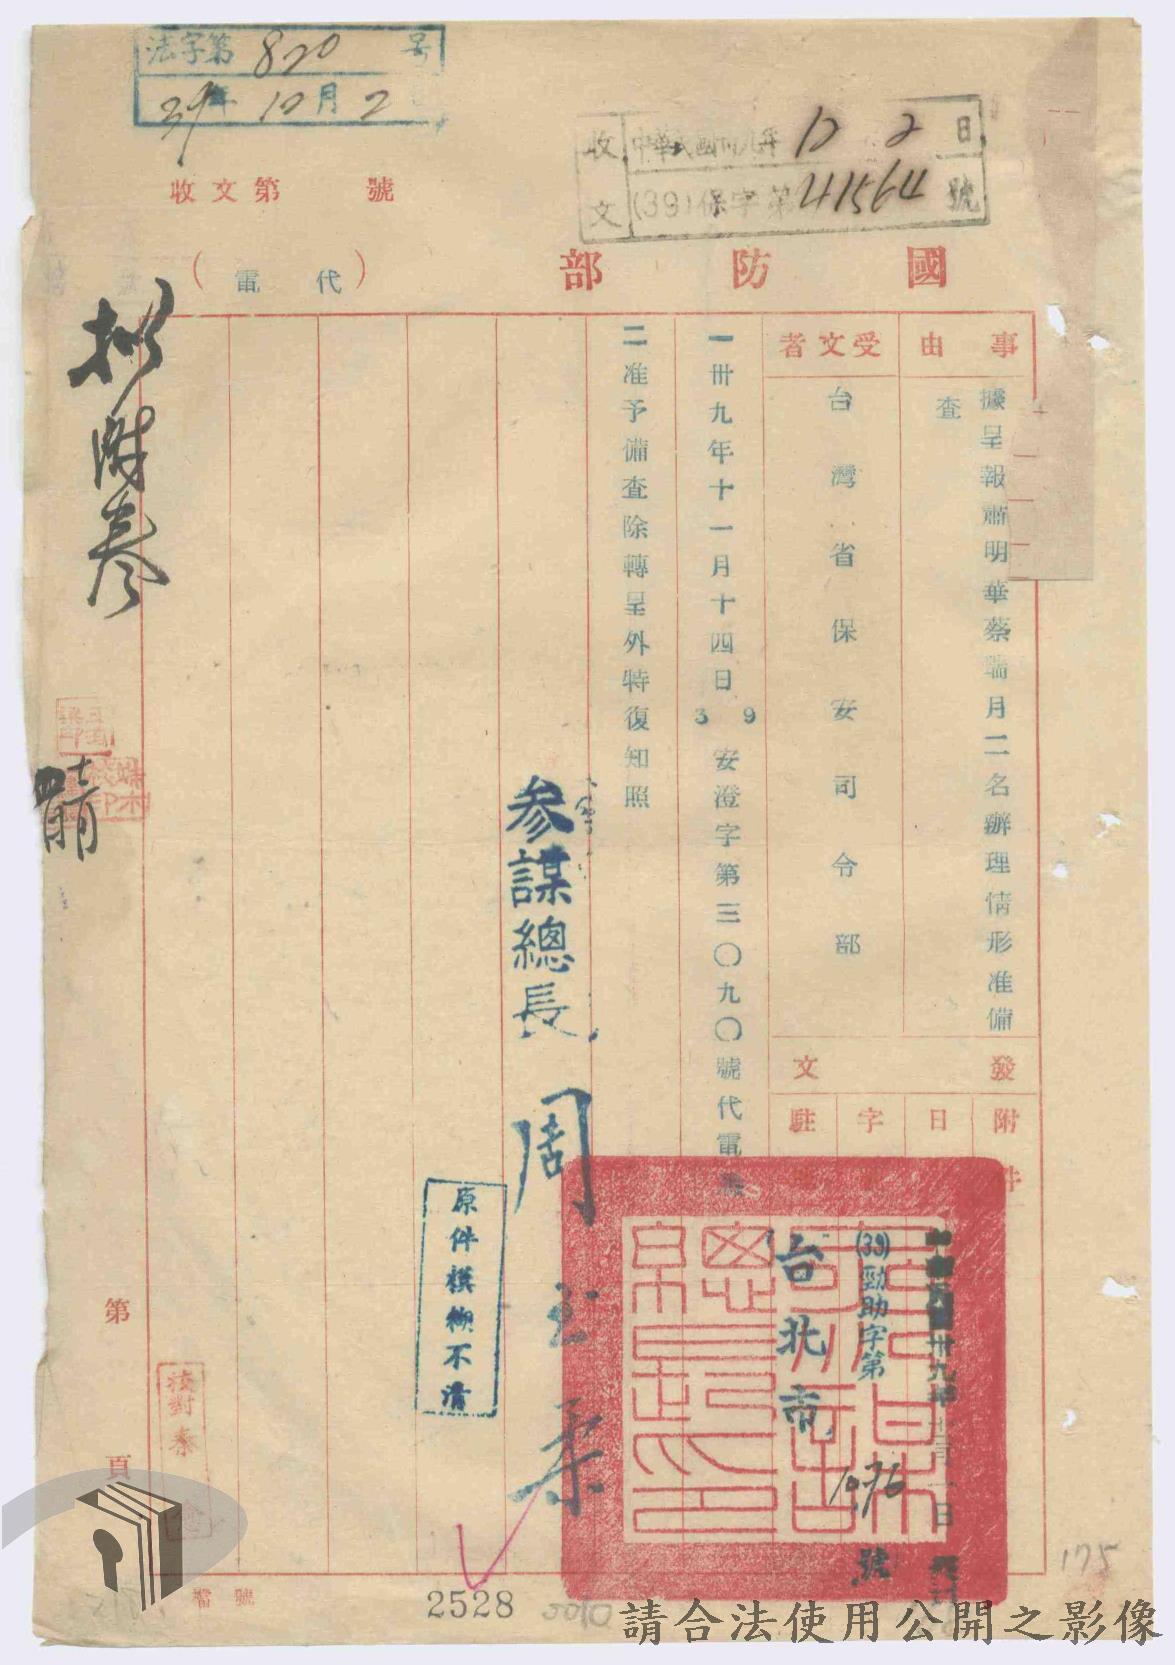 法字第 820 号
39年 12月2
收文
中華民國卅九年 12 2 日
(39)保字第41564號
收文第 號
國防部
(代電)
事由
據呈報蕭明華蔡瑞月二名辦理情形准備
查
受文者
台灣省保安司令部
發文
附件
日
字
駐
中華民國卅九年十二月一日
(39)勁助字第 1076 號
台北市
一卅九年十一月十四日39安澄字第三〇九〇號代電悉
二准予備查除轉呈外特復知照
參謀總長 周至柔
原件模糊不清
擬附卷
校對秦
第 頁
檔號
2528
175
請合法使用公開之影像